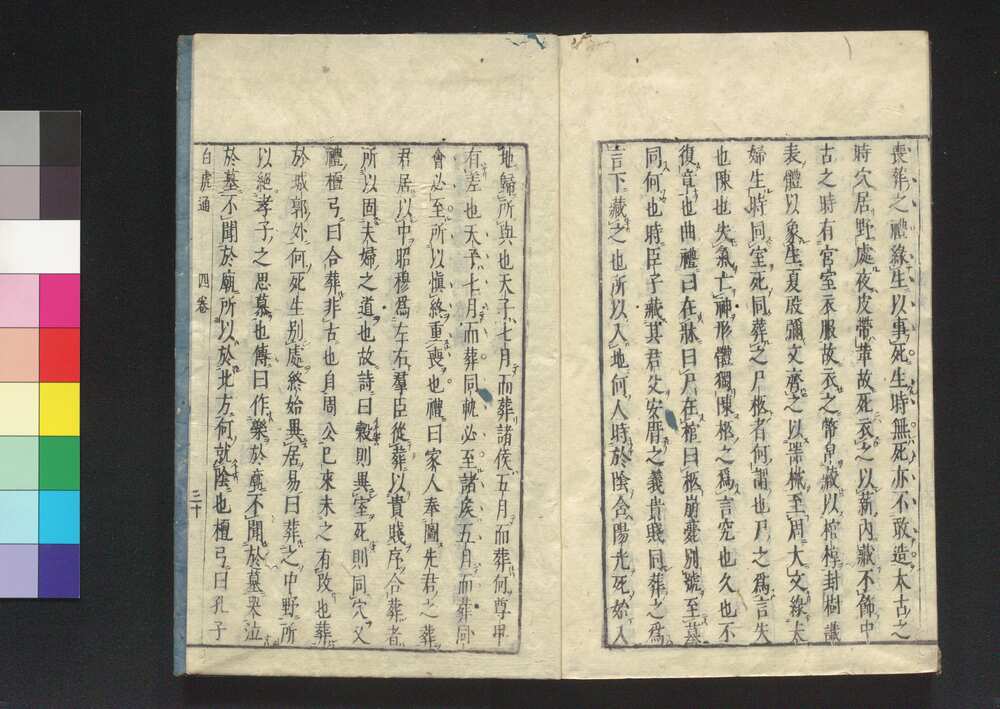 喪葬之禮緣生以事死生時無死亦不敢造太古之
時穴居野處衣皮帶革故死衣之以薪內藏不飾中
古之時有宮室衣服故衣之幣帛藏以棺椁封樹識
表體以象生夏殷彌文齊之以器械至周大文緣夫
婦生時同室死同葬之尸柩者何謂也尸之為言失
也陳也失氣亡神形體獨陳柩之爲言究也久也不
復章也曲禮曰在牀曰尸在棺曰柩崩薨別號至墓
同何也時臣子藏其君父安厝之義貴賤同葬之爲
言下藏之也所以入地何人時於陰含陽光死始入
地歸所與也天子七月而葬諸侯五月而葬何尊卑
有差也天子七月而葬同軌必至諸侯五月而葬同
會必至所以愼終重喪也禮曰冢人奉圖先君之葬
君居以中昭穆爲左右羣臣從葬以貴賤序合葬者
所以固夫婦之道也故詩曰穀則異室死則同穴又
禮檀弓曰合葬非古也自周公已來未之有改也葬
於城郭外何死生別處終始異居易曰葬之中野所
以絕孝子之思慕也傳曰作樂於廟不聞於墓哭泣
於墓不聞於廟所以於北方何就陰也檀弓曰孔子
白虎通 四卷 三十